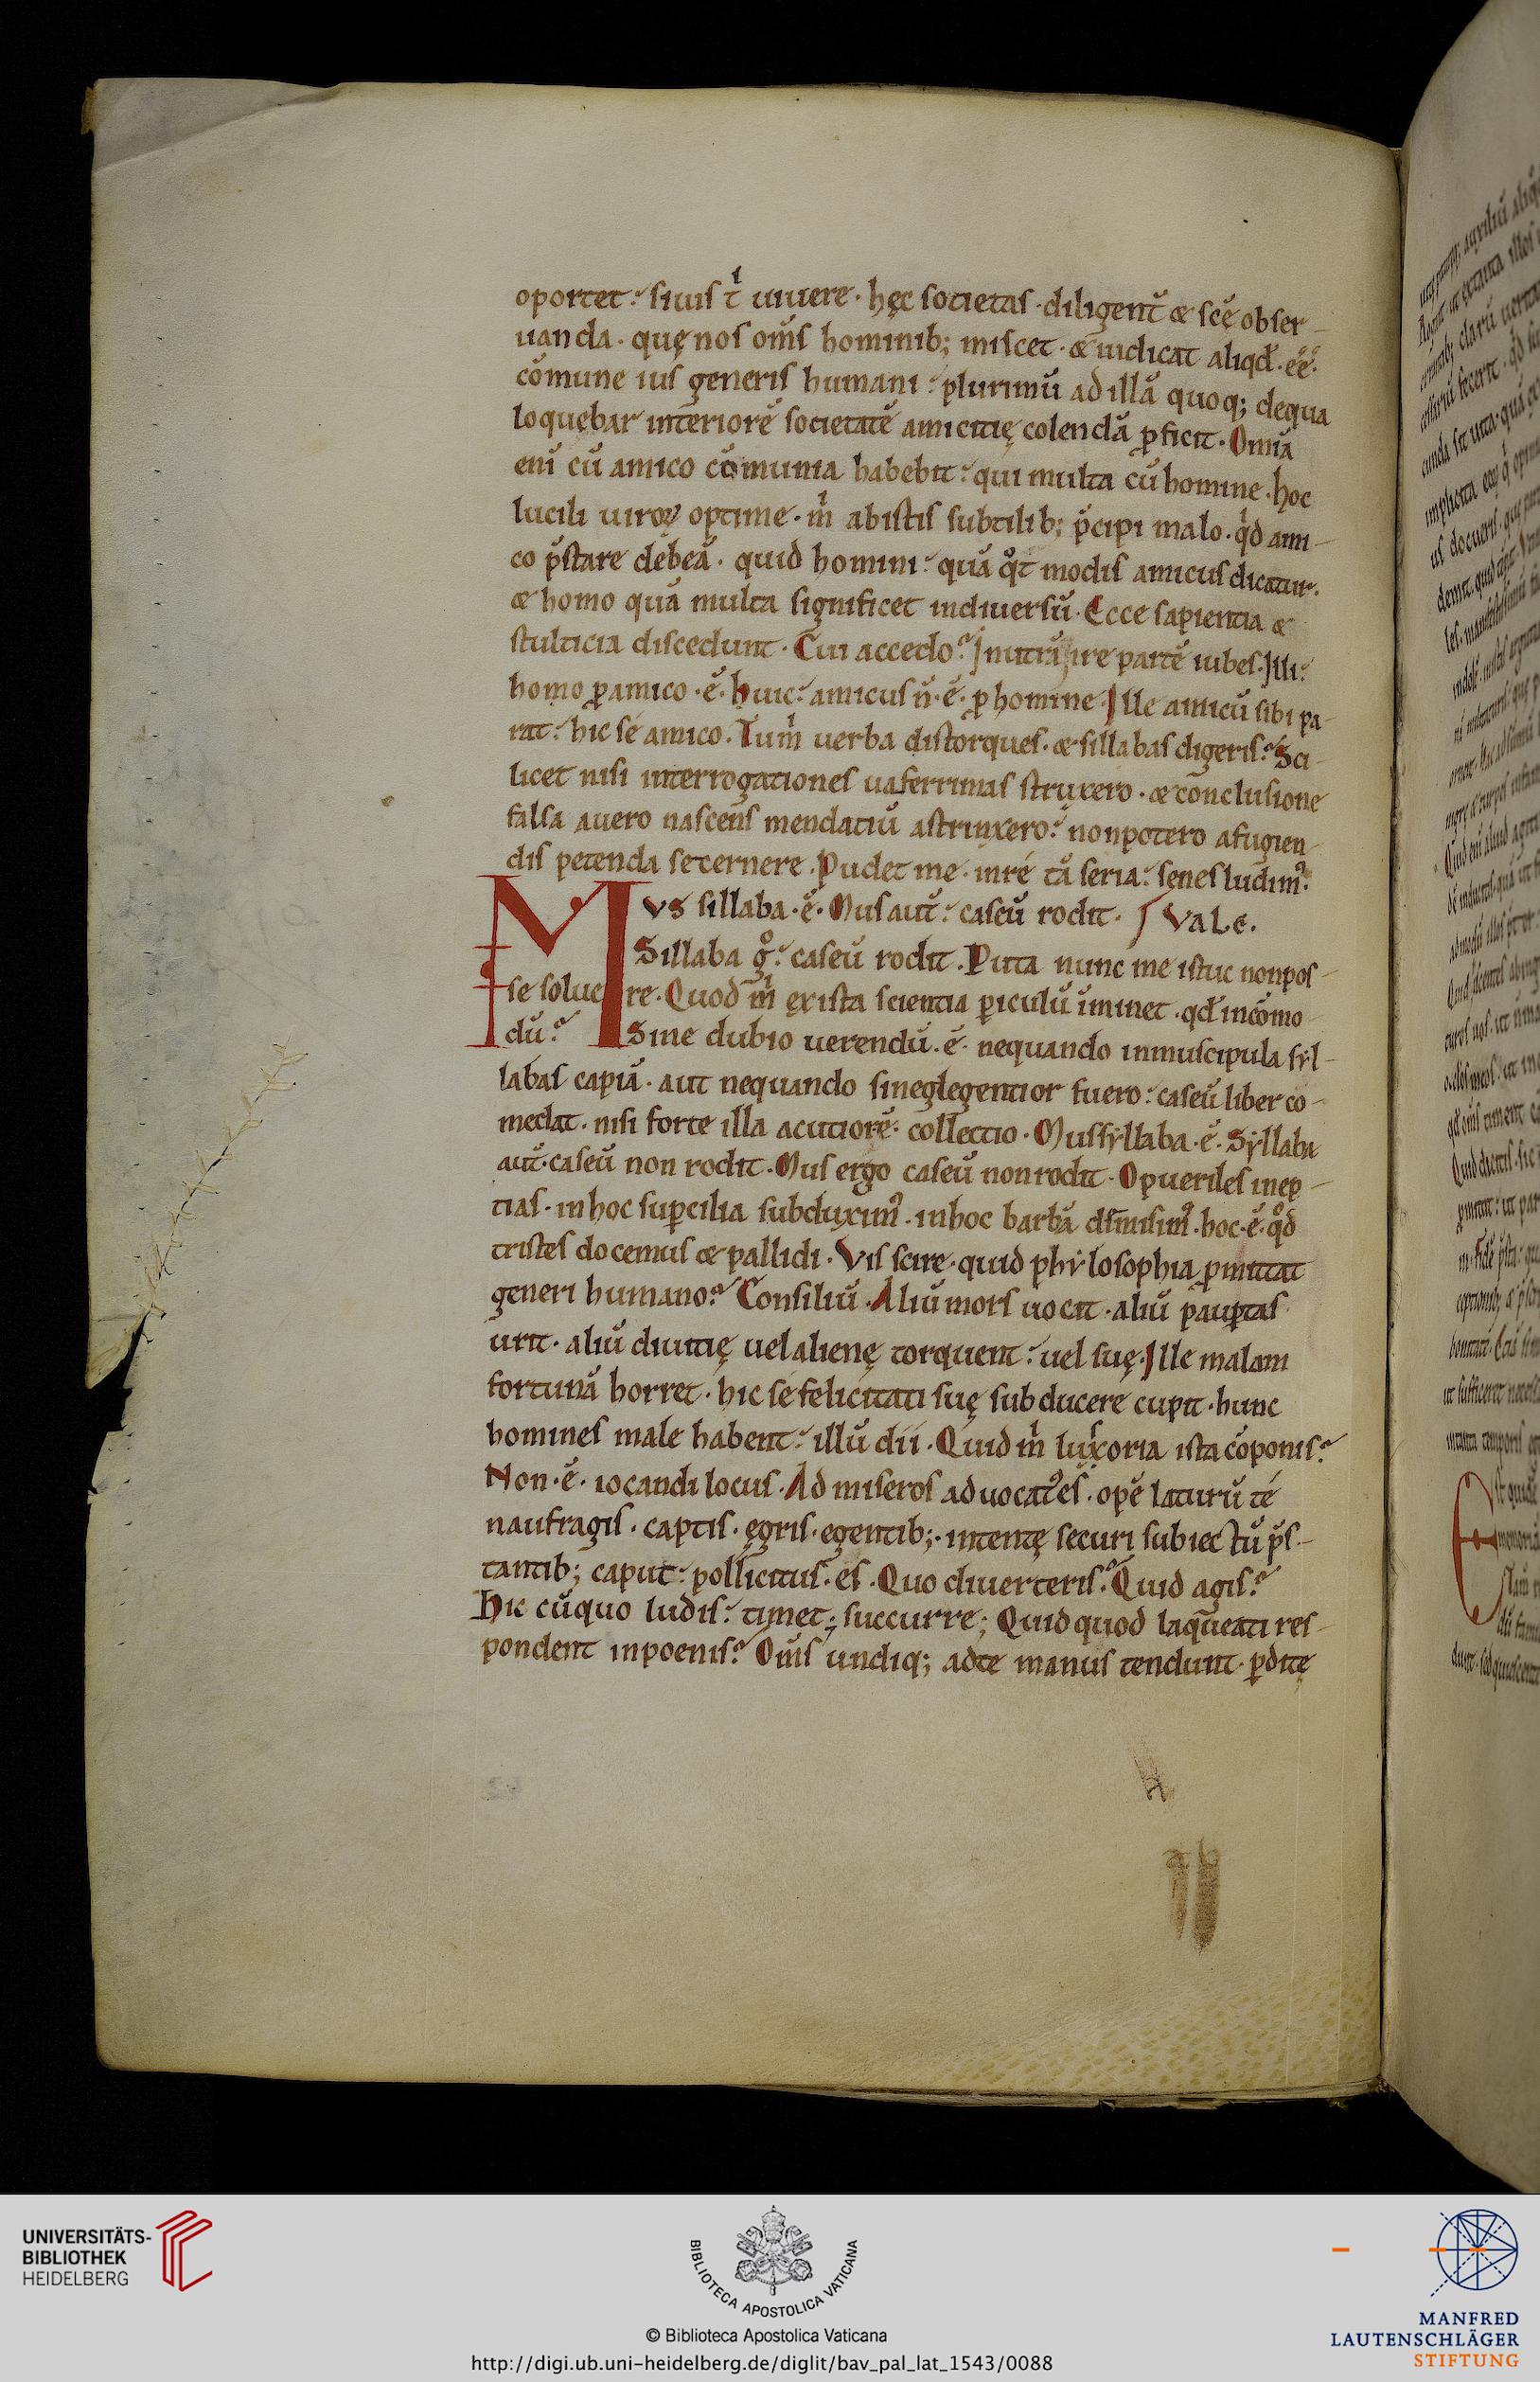 oportet. si uis t̄ᶦ uiuere. hęc societas. diligent̄ & scē obser-
uanda. quę nos om̄s hominib; miscet. & iudicat aliqđ. eē.
cōmune ius generis humani. plurimū ad illā quoq; dequa
loquebar interiorē societatē amicitię colendā ꝓficit. Omīa
eni cū amico cōmunia habebit. qui multa cū homine. hoc
lucili uiroꝝ optime. m̄ᶦ abistis subtilib; p̄cipi malo. qͥd ami-
co p̄stare debeā. quid homini. quā qͦt modis amicus dicatur.
& homo quā multa significet indiuersū. Ecce sapientia &
stulticia discedunt. Cui accedo? Inutrā ire partē iubes. Illi.
homo ꝑ amico. ē. huic. amicus n̄. ē. ꝓ homine. Ille amicū sibi pa-
rat. hic sé amico. Tu m̄ᶦ uerba distorques. & sillabas digeris? Sci-
licet nisi interrogationes uaferrimas struxero. & conclusione
falsa auero nascens mendatiū astrinxero. non potero afugien-
dis petenda secernere. Pudet me. inré tā seria. senes ludim᾿.
MVS sillaba. ē. Mus aut̄. caseū rodit. ∫ VALE.
Sillaba gͦ. caseū rodit. Puta nunc me istuc nonpos-
se soluere. Quod m̄ᶦ exista scientia ꝑiculū iminet. qđ incōmo-
dū? Sine dubio uerendū. ē. nequando inmuscipula syl-
labas capiā. aut nequando sineglegentior fuero. caseū liber co-
medat. nisi forte illa acutiorē. collectio. Mus syllaba. ē. Syllaba
aut̄. caseū non rodit. Mus ergo caseū nonrodit. O pueriles inep-
tias. inhoc suꝑcilia subduxim᾿. inhoc barbā dimisim᾿. hoc. ē. qͦd
tristes docemus & pallidi. Vis scire. quid phylosophia ꝓmittat
generi humano? Consiliū. Aliū mors uocat. aliū pauꝑtas
urit. aliū diuitię uel alienę torquent. uel suę. Ille malam
fortunā horret. hic sé felicitati suę subducere cupit. hunc
homines male habent. illū dii. Quid m̄ᶦ luxoria ista cōponis?
Non. ē. iocandi locus. Ad miseros aduocat᾿es. opē laturū té
naufragis. captis. ęgris. egentib;. intentę securi subiectū p̄s-
tantib; caput. pollicitus. es. Quo diuerteris? Quid agis?
Hic cūquo ludis. timet; succurre; Quid quod laqueati res-
pondent inpoenis? Om̄s undiq; adte manus tendunt. ꝑdite
UNIVERSITÄTS-
BIBLIOTHEK
HEIDELBERG
BIBLIOTECA APOSTOLICA VATICANA
© Biblioteca Apostolica Vaticana
http://digi.ub.uni-heidelberg.de/diglit/bav_pal_lat_1543/0088
MANFRED
LAUTENSCHLÄGER
STIFTUNG